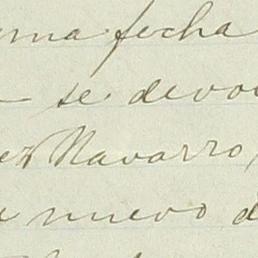 fecha
se devol
Navarro,
nuevo d